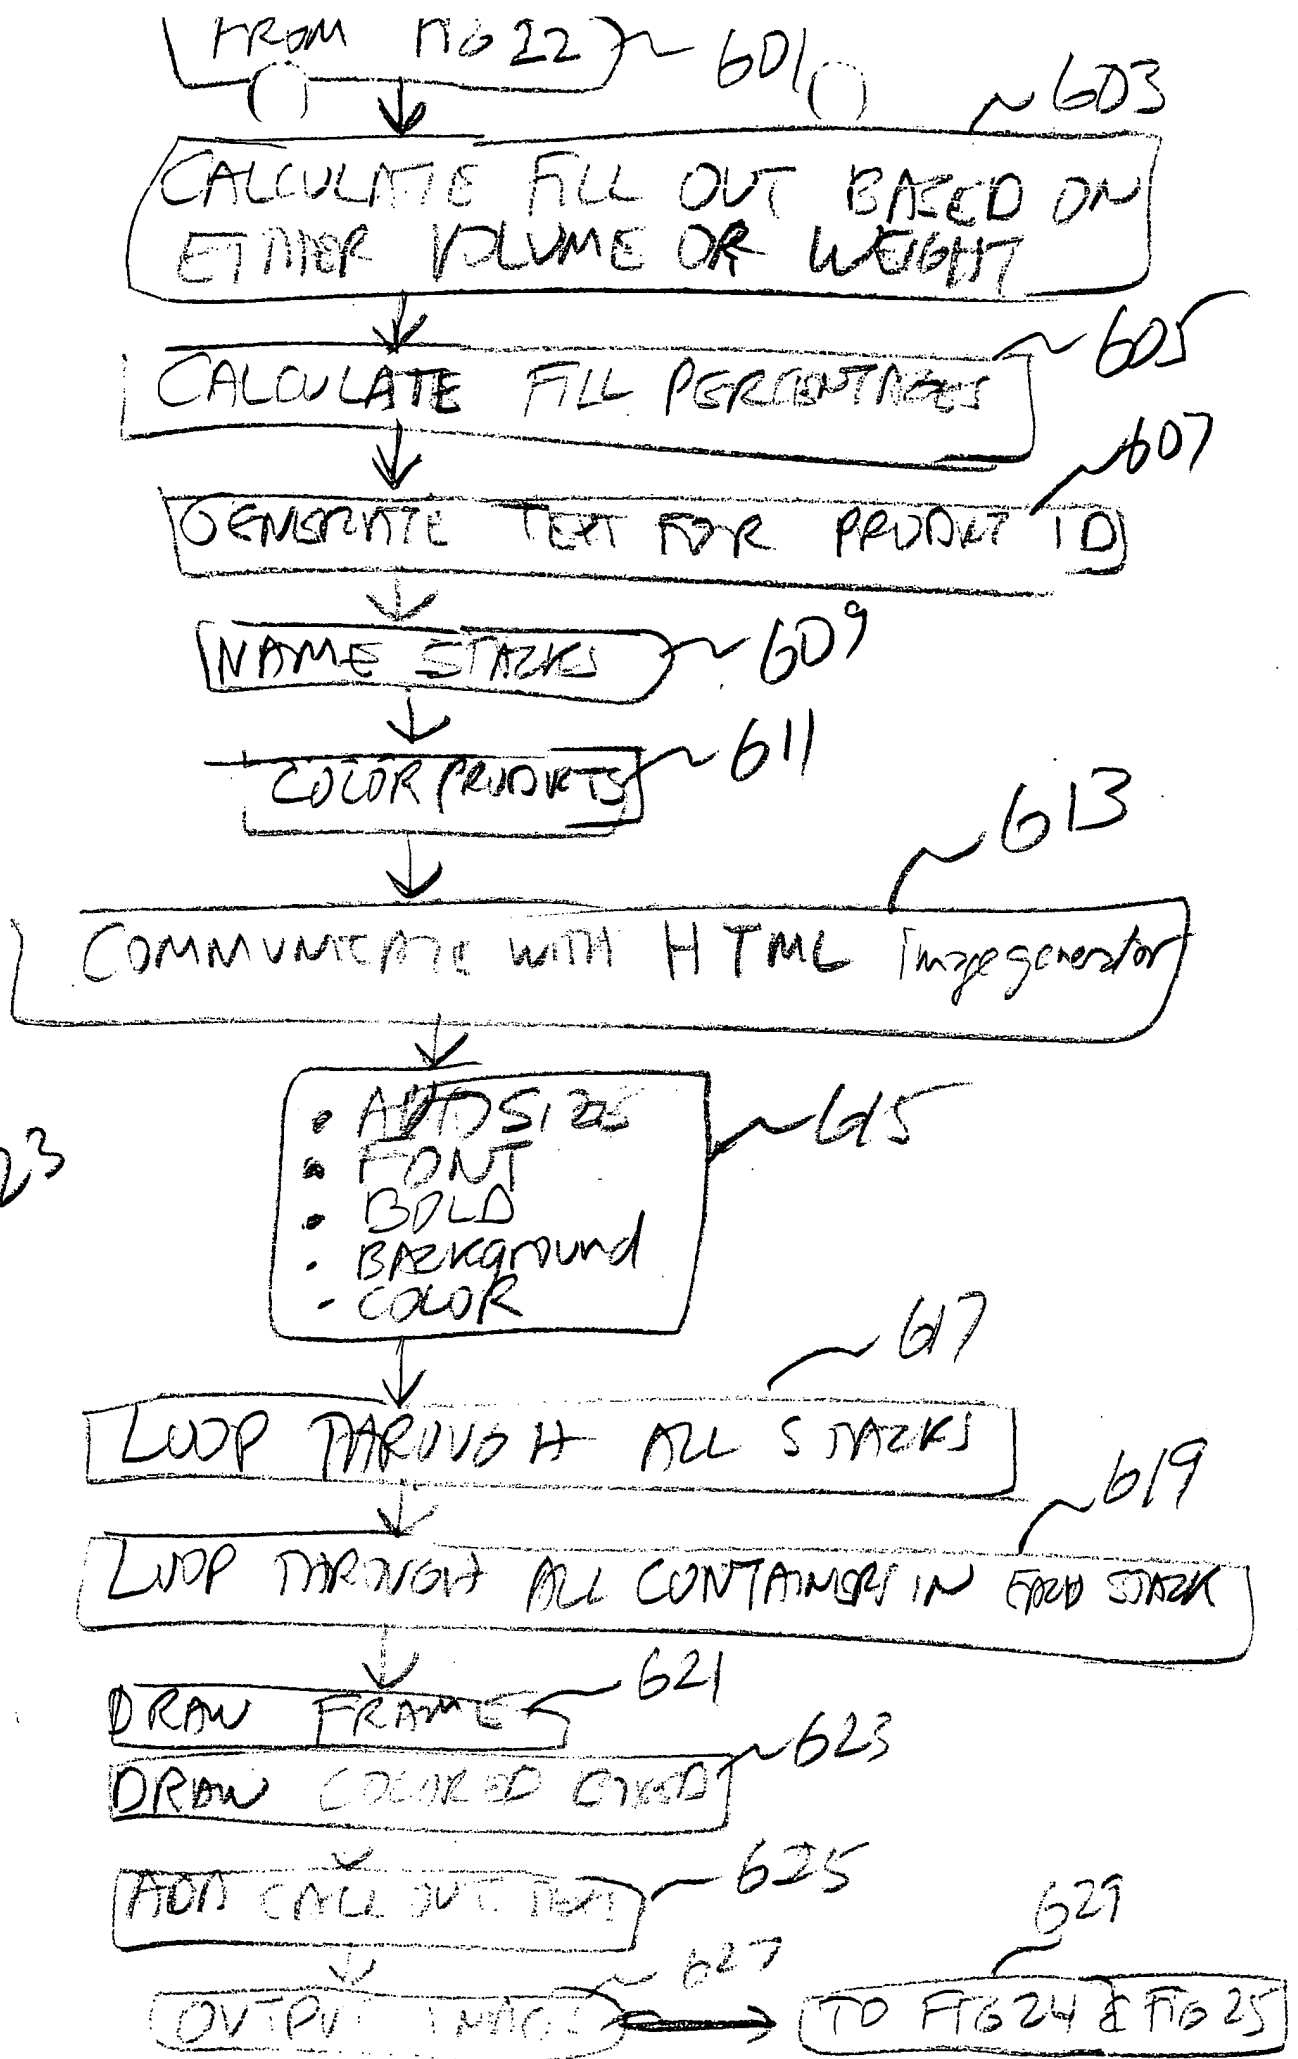 FROM FIG 22 601
603
CALCULATE FILL OUT BASED ON
EITHER VOLUME OR WEIGHT
605
CALCULATE FILL PERCENTAGES
607
GENERATE TEXT FOR PRODUCT ID
NAME STACKS 609
COLOR PRODUCTS 611
613
COMMUNICATE WITH HTML Image generator
• AUTO SIZES
615
• FONT
23
• BOLD
• BACKground
• COLOR
617
LOOP THROUGH ALL STACKS
619
LOOP THROUGH ALL CONTAINERS IN EACH STACK
621
DRAW FRAME
623
DRAW COLORED
625
ADD CALL OUT TEXT
627
629
OUTPUT IMAGE
TO FIG 24 & FIG 25